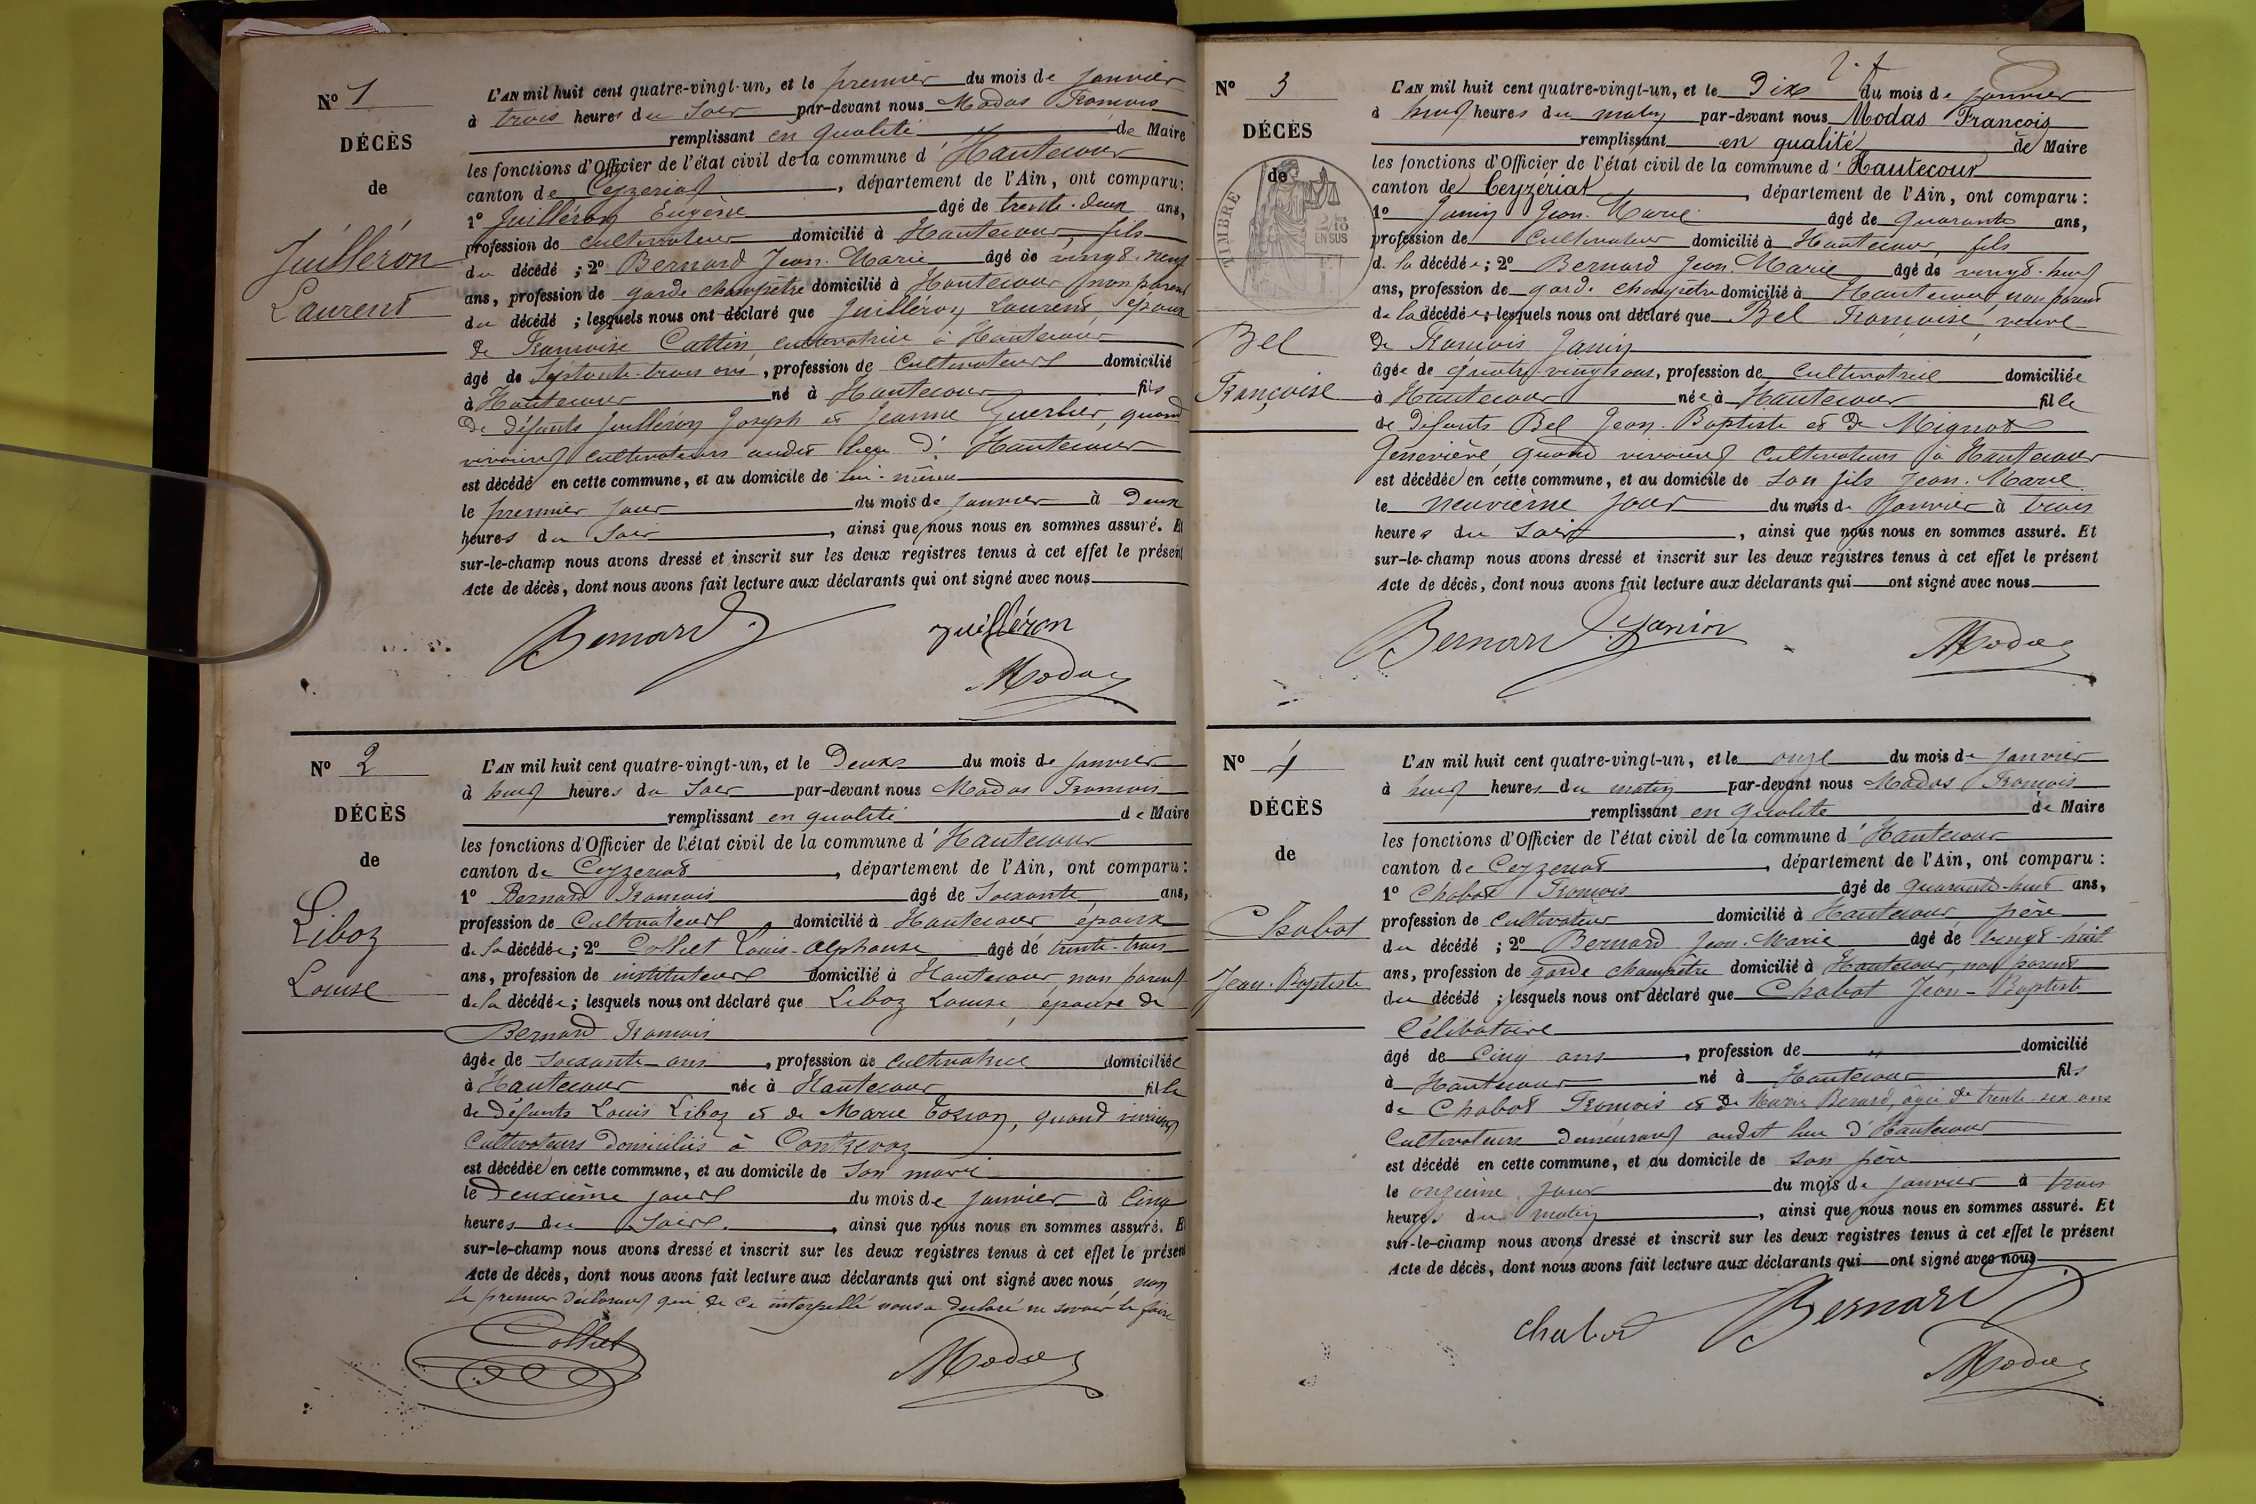 Nº 1
DÉCÈS
de
Juilléron
Laurent
L'AN mil huit cent quatre-vingt-un, et le premier du mois de janvier
à trois heures du soir par-devant nous Modas François
remplissant en qualité de Maire
les fonctions d'Officier de l'état civil de la commune d' Hautecour
canton de Ceyzeriat, département de l'Ain, ont comparu:
1º Juilléron Eugène âgé de trente-deux ans,
profession de cultivateur domicilié à Hautecour fils
du décédé ; 2º Bernard Jean-Marie âgé de vingt-neuf
ans, profession de garde champêtre domicilié à Hautecour non parent
du décédé ; lesquels nous ont déclaré que Juilléron Laurent, époux
de Françoise Cattin cultivatrice à Hautecour
âgé de septante-trois ans, profession de Cultivateur domicilié
à Hautecour né à Hautecour fils
de défunts Juilléron Joseph et Jeanne Guerbier, quand
vivaient cultivateurs audit lieu d' Hautecour
est décédé en cette commune, et au domicile de lui-même
le premier jour du mois de janvier à deux
heures du soir, ainsi que nous nous en sommes assuré. Et
sur-le-champ nous avons dressé et inscrit sur les deux registres tenus à cet effet le présent
Acte de décès, dont nous avons fait lecture aux déclarants qui ont signé avec nous
Bernard Juilléron
Modas
Nº 2
DÉCÈS
de
Liboz
Louise
L'AN mil huit cent quatre-vingt-un, et le Deux du mois de janvier
à neuf heures du soir par-devant nous Modas François
remplissant en qualité de Maire
les fonctions d'Officier de l'état civil de la commune d' Hautecour
canton de Ceyzeriat, département de l'Ain, ont comparu:
1º Bernard François âgé de soixante ans,
profession de Cultivateur domicilié à Hautecour époux
de la décédée; 2º Collet Louis-Alphonse âgé de trente-trois
ans, profession de instituteur domicilié à Hautecour non parent
de la décédée; lesquels nous ont déclaré que Liboz Louise, épouse de
Bernard François
âgée de soixante ans, profession de cultivatrice domiciliée
à Hautecour née à Hautecour fille
de défunts Louis Liboz et de Marie, quand vivaient
Cultivateurs domiciliés à
est décédée en cette commune, et au domicile de son mari
le deuxième jour du mois de janvier à cinq
heures du soir, ainsi que nous nous en sommes assuré. Et
sur-le-champ nous avons dressé et inscrit sur les deux registres tenus à cet effet le présent
Acte de décès, dont nous avons fait lecture aux déclarants qui ont signé avec nous non
le premier déclarant qui de ce interpellé nous a declaré ne savoir le faire
Collet Modas
Nº 3
DÉCÈS
de
TIMBRE
2/10 EN SUS
Bel
Françoise
L'AN mil huit cent quatre-vingt-un, et le Dix du mois de janvier
à neuf heures du matin par-devant nous Modas François
remplissant en qualité de Maire
les fonctions d'Officier de l'état civil de la commune d' Hautecour
canton de Ceyzériat, département de l'Ain, ont comparu:
1º Janin Jean-Marie âgé de quarante ans,
profession de Cultivateur domicilié à Hautecour fils
de la décédée; 2º Bernard Jean-Marie âgé de vingt-neuf
ans, profession de garde champêtre domicilié à Hautecour non parent
de la décédée; lesquels nous ont déclaré que Bel Françoise, veuve
de François Janin
âgée de quatre-vingts ans, profession de cultivatrice domiciliée
à Hautecour née à Hautecour fille
de défunts Bel Jean-Baptiste et de Mignot
Geneviève quand vivaient Cultivateurs à Hautecour
est décédée en cette commune, et au domicile de son fils Jean-Marie
le neuvième jour du mois de Janvier à trois
heures du soir, ainsi que nous nous en sommes assuré. Et
sur-le-champ nous avons dressé et inscrit sur les deux registres tenus à cet effet le présent
Acte de décès, dont nous avons fait lecture aux déclarants qui ont signé avec nous
Bernard Janin Modas
Nº 4
DÉCÈS
de
Chabot
Jean-Baptiste
L'AN mil huit cent quatre-vingt-un, et le onze du mois de janvier
à neuf heures du matin par-devant nous Modas François
remplissant en qualité de Maire
les fonctions d'Officier de l'état civil de la commune d' Hautecour
canton de Ceyzeriat, département de l'Ain, ont comparu :
1º Chabot François âgé de quarante-huit ans,
profession de cultivateur domicilié à Hautecour père
du décédé ; 2º Bernard Jean-Marie âgé de vingt-huit
ans, profession de garde champêtre domicilié à Hautecour, non parent
du décédé ; lesquels nous ont déclaré que Chabot Jean-Baptiste
Célibataire
âgé de Cinq ans, profession de " domicilié
à Hautecour né à Hautecour fils
de Chabot François et de Marie Berard, âgée de trente six ans
Cultivateurs demeurant audit lieu d'Hautecour
est décédé en cette commune, et au domicile de son père
le onzième jour du mois de janvier à trois
heures du matin, ainsi que nous nous en sommes assuré. Et
sur-le-champ nous avons dressé et inscrit sur les deux registres tenus à cet effet le présent
Acte de décès, dont nous avons fait lecture aux déclarants qui ont signé avec nous
chabot Bernard
Modas